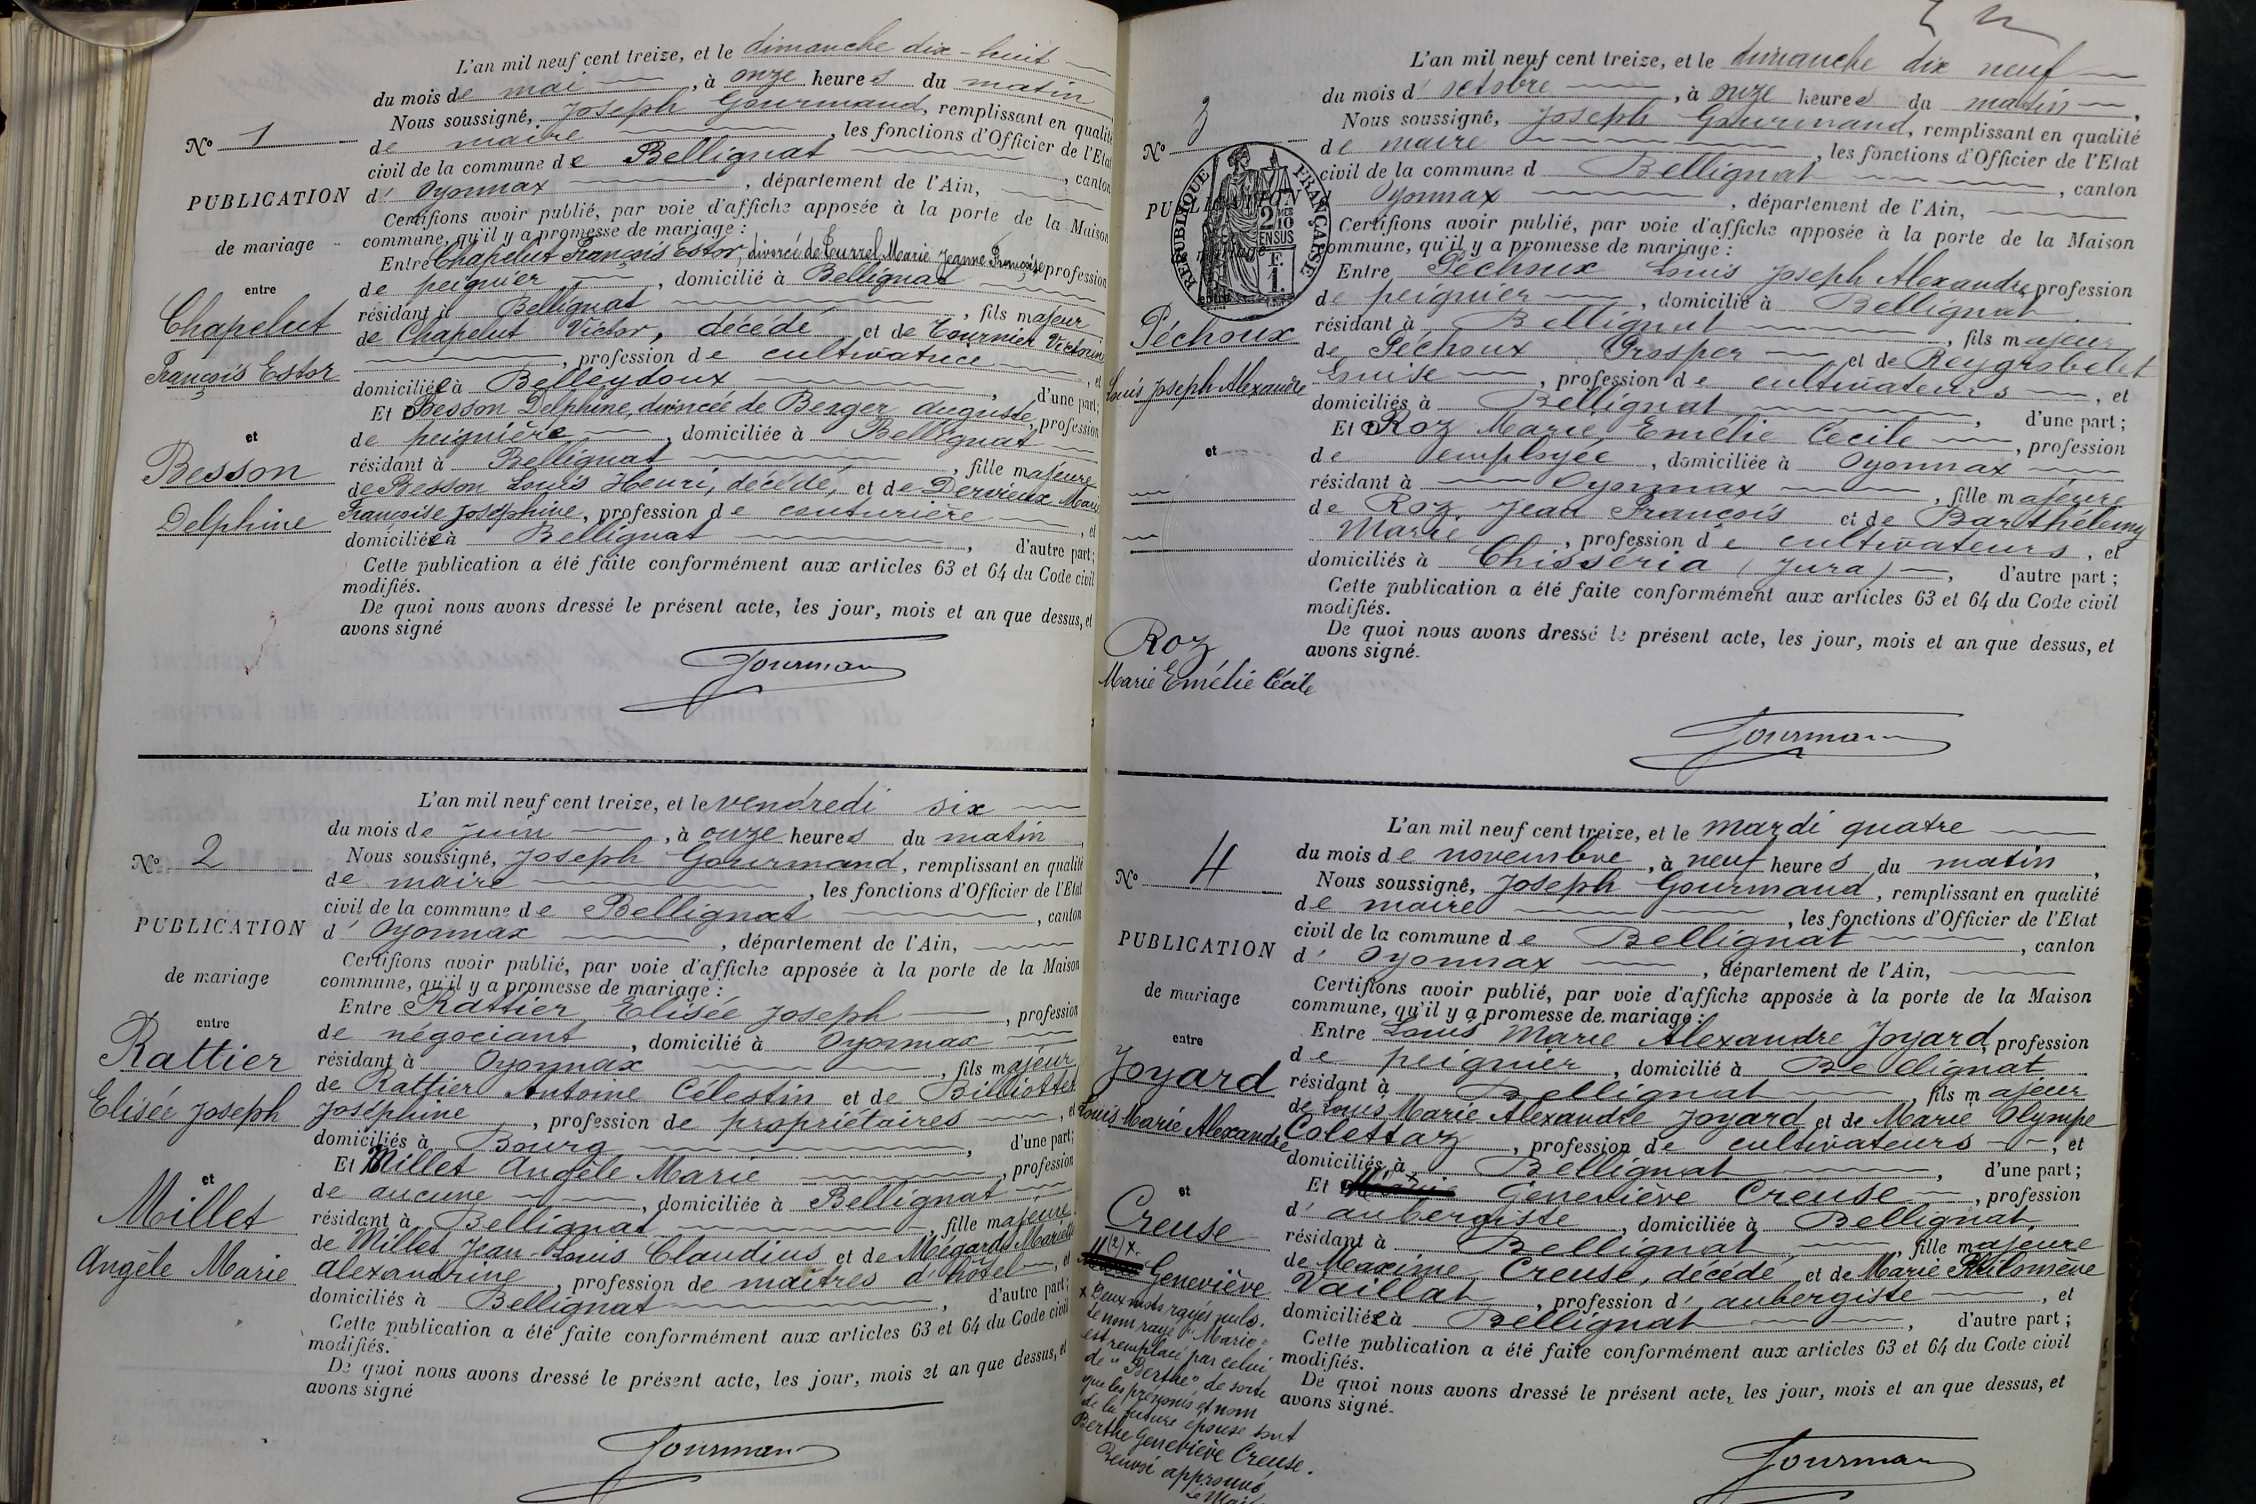 L'an mil neuf cent treize, et le dimanche dix-huit
du mois de mai, à onze heures du matin
Nous soussigné, Joseph Gourmand, remplissant en qualité
de maire, les fonctions d'Officier de l'Etat
civil de la commune de Bellignat, canton
d'Oyonnax, département de l'Ain,
Certifions avoir publié, par voie d'affiche apposée à la porte de la Maison
commune, qu'il y a promesse de mariage :
Entre Chapelut François Estor, divorcé de Tournel Marie Jeanne Françoise profession
de peignier, domicilié à Bellignat
résidant à Bellignat, fils majeur
de Chapelut Victor, décédé et de Tournier Victorine
, profession de cultivatrice, et
domiciliée à Belleydoux, d'une part;
Et Besson Delphine, divorcée de Berger Auguste, profession
de peignière, domiciliée à Bellignat
résidant à Bellignat, fille majeure
de Besson Louis Henri, décédé, et de Dervieux Marie
Françoise Joséphine, profession de couturière, et
domiciliée à Bellignat, d'autre part;
Cette publication a été faite conformément aux articles 63 et 64 du Code civil
modifiés.
De quoi nous avons dressé le présent acte, les jour, mois et an que dessus, et
avons signé
Gourmand
N° 1
PUBLICATION
de mariage
entre
Chapelut
François Estor
et
Besson
Delphine
L'an mil neuf cent treize, et le vendredi six
du mois de juin, à onze heures du matin
Nous soussigné, Joseph Gourmand, remplissant en qualité
de maire, les fonctions d'Officier de l'Etat
civil de la commune de Bellignat, canton
d'Oyonnax, département de l'Ain,
Certifions avoir publié, par voie d'affiche apposée à la porte de la Maison
commune, qu'il y a promesse de mariage :
Entre Rattier Elisée Joseph, profession
de négociant, domicilié à Oyonnax
résidant à Oyonnax, fils majeur
de Rattier Antoine Célestin et de Billiottet
Joséphine, profession de propriétaires, et
domiciliés à Bourg, d'une part;
Et Millet Angèle Marie, profession
de aucune, domiciliée à Bellignat
résidant à Bellignat, fille majeure
de Millet Jean-Louis Claudius et de Mégard Mariette
Alexandrine, profession de maîtres d'hôtel, et
domiciliés à Bellignat, d'autre part;
Cette publication a été faite conformément aux articles 63 et 64 du Code civil
modifiés.
De quoi nous avons dressé le présent acte, les jour, mois et an que dessus, et
avons signé
Gourmand
N° 2
PUBLICATION
de mariage
entre
Rattier
Elisée Joseph
et
Millet
Angèle Marie
L'an mil neuf cent treize, et le dimanche dix neuf
du mois d'octobre, à onze heures du matin,
Nous soussigné, Joseph Gourmand, remplissant en qualité
de maire, les fonctions d'Officier de l'Etat
civil de la commune d Bellignat, canton
Oyonnax, département de l'Ain,
Certifions avoir publié, par voie d'affiche apposée à la porte de la Maison
commune, qu'il y a promesse de mariage :
Entre Péchoux Louis Joseph Alexandre, profession
de peignier, domicilié à Bellignat
résidant à Bellignat, fils majeur
de Péchoux Prosper et de Reygrobellet
Louise, profession de cultivateurs, et
domiciliés à Bellignat, d'une part;
Et Roz Marie Emélie Cécile, profession
de employée, domiciliée à Oyonnax
résidant à Oyonnax, fille majeure
de Roz Jean François et de Barthélemy
Marie, profession de cultivateurs, et
domiciliés à Chisséria (Jura), d'autre part;
Cette publication a été faite conformément aux articles 63 et 64 du Code civil
modifiés.
De quoi nous avons dressé le présent acte, les jour, mois et an que dessus, et
avons signé.
Gourmand
N° 3
PUBLICATION
mariage
entre
REPUBLIQUE FRANÇAISE
2 MES
10
EN SUS
F.
1.
Péchoux
Louis Joseph Alexandre
et
Roz
Marie Emélie Cécile
L'an mil neuf cent treize, et le mardi quatre
du mois de novembre, à neuf heures du matin,
Nous soussigné, Joseph Gourmand, remplissant en qualité
de maire, les fonctions d'Officier de l'Etat
civil de la commune de Bellignat, canton
d'Oyonnax, département de l'Ain,
Certifions avoir publié, par voie d'affiche apposée à la porte de la Maison
commune, qu'il y a promesse de mariage :
Entre Louis Marie Alexandre Joyard, profession
de peignier, domicilié à Bellignat
résidant à Bellignat, fils majeur
de Louis Marie Alexandre Joyard et de Marie Olympe
Colettaz, profession de cultivateurs, et
domiciliés à Bellignat, d'une part;
Et Marie Geneviève Creuse, profession
d'aubergiste, domiciliée à Bellignat
résidant à Bellignat, fille majeure
de Maxime Creuse, décédé et de Marie Philomène
Vaillat, profession d'aubergiste, et
domiciliée à Bellignat, d'autre part;
Cette publication a été faite conformément aux articles 63 et 64 du Code civil
modifiés.
De quoi nous avons dressé le présent acte, les jour, mois et an que dessus, et
avons signé.
Gourmand
N° 4
PUBLICATION
de mariage
entre
Joyard
Louis Marie Alexandre
et
Creuse
(2) x.
Geneviève
x Deux mots rayés nuls.
Le nom rayé "Marie"
est remplacé par celui
de "Berthe" de sorte
que les prénoms et nom
de la future épouse sont
Berthe Geneviève Creuse.
Renvoi approuvé
Le Maire